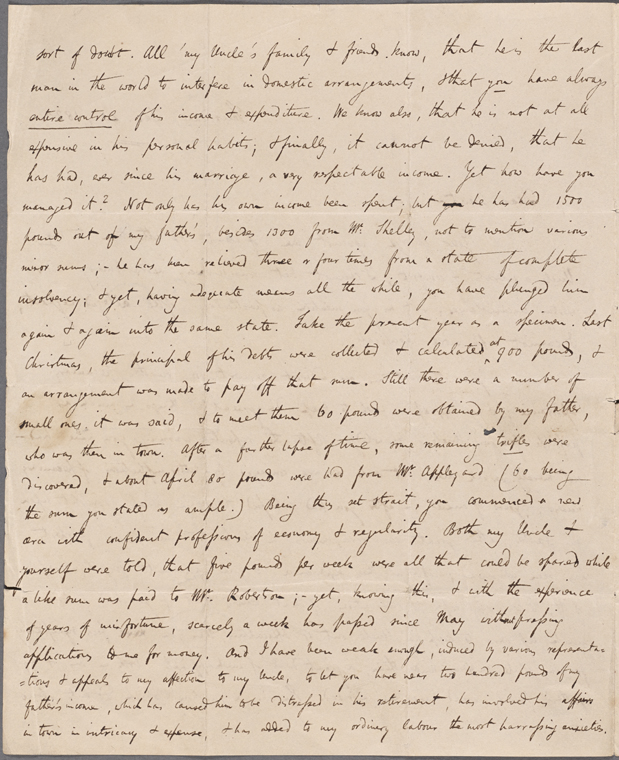 sort of doubt. All my Uncle's family & friends know, that he is the last
man in the world to interfere in domestic arrangements, & that you have always
entire control of his income & expenditure. We know also, that he is not at all
expensive in his personal habits; & finally, it cannot be denied, that he
has had, ever since his marriage, a very respectable income. Yet how have you
managed it? Not only has his own income been spent; but he has had 1500
pounds out of my father's, besides 1300 from Mr. Shelley, not to mention various
minor sums; - he has been relieved three or four times from a state of complete
insolvency; & yet, having adequate means all the while, you have plunged him
again & again into the same state. Take the present year as a specimen. Last
Christmas, the principal of his debts were collected & calculated at 900 pounds, &
an arrangement was made to pay off that sum. Still there were a number of
small ones, it was said, & to meet them 60 pound were obtained by my father,
who was then in town. After a farther lapse of time, some remaining trifles were
discovered, & about April 80 pounds were had from Mr. Appleyard (60 being
the sum you stated as ample.) Being thus set strait, you commenced a new
æra with confident professions of economy & regularity. Both my Uncle &
yourself were told, that five pounds per week were all that could be spared while
a like sum was paid to Mr. Robertson; - yet, knowing this, & with the experience
of years of misfortune, scarcely a week has passed since May without pressing
applications to me for money. And I have been weak enough, induced by various representa-
-tions & appeals to my affection to my Uncle, to let you have near two hundred pounds of my
father's income, which has caused him to be distressed in his retirement, has involved his affairs
in town in intricacy & expense, & has added to my ordinary labour the most harrassing anxieties.